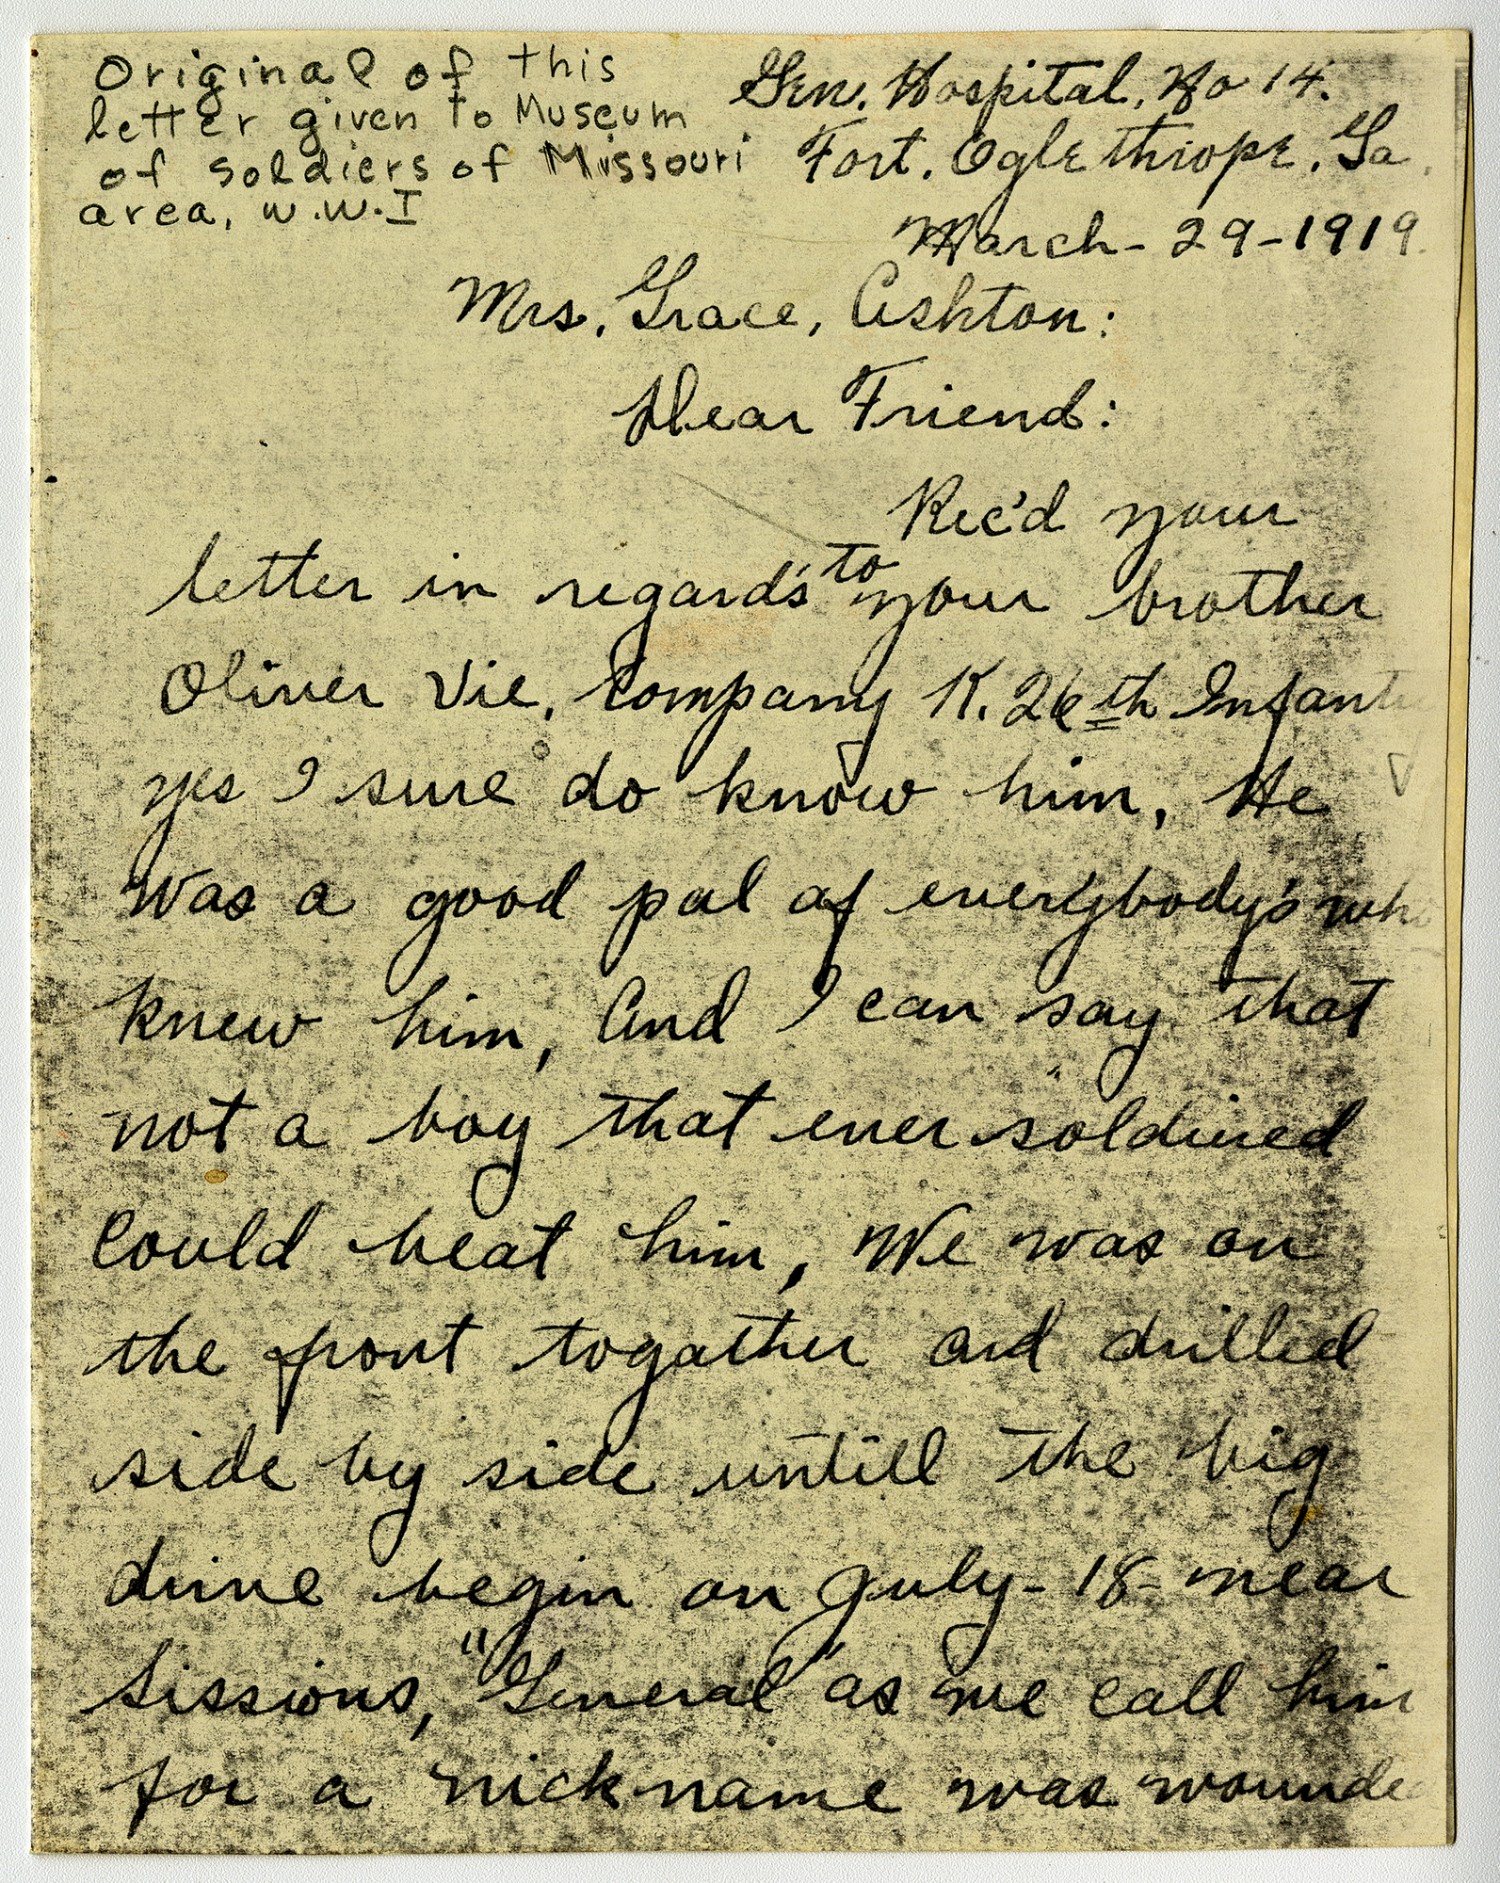 Original of this
letter given to Museum
of soldiers of Missouri
area, W.W.I
Gen. Hospital, No 14.
Fort. Oglethrope, Ga.
March - 29 - 1919.
Mrs. Grace, Ashton:
Dear Friend:
Rec'd your
letter in regard's to your brother
Oliver Vie, Company K. 26th Infant
yes I sure do know him, He
was a good pal of every'body's who
knew him, And I can say that
not a boy that ever soldiered
Could beat him, We was on
the front togather and drilled
side by side untill the big
drive begin on July - 18 - near
Sissions, "General" as we call him
for a nick name was wounde